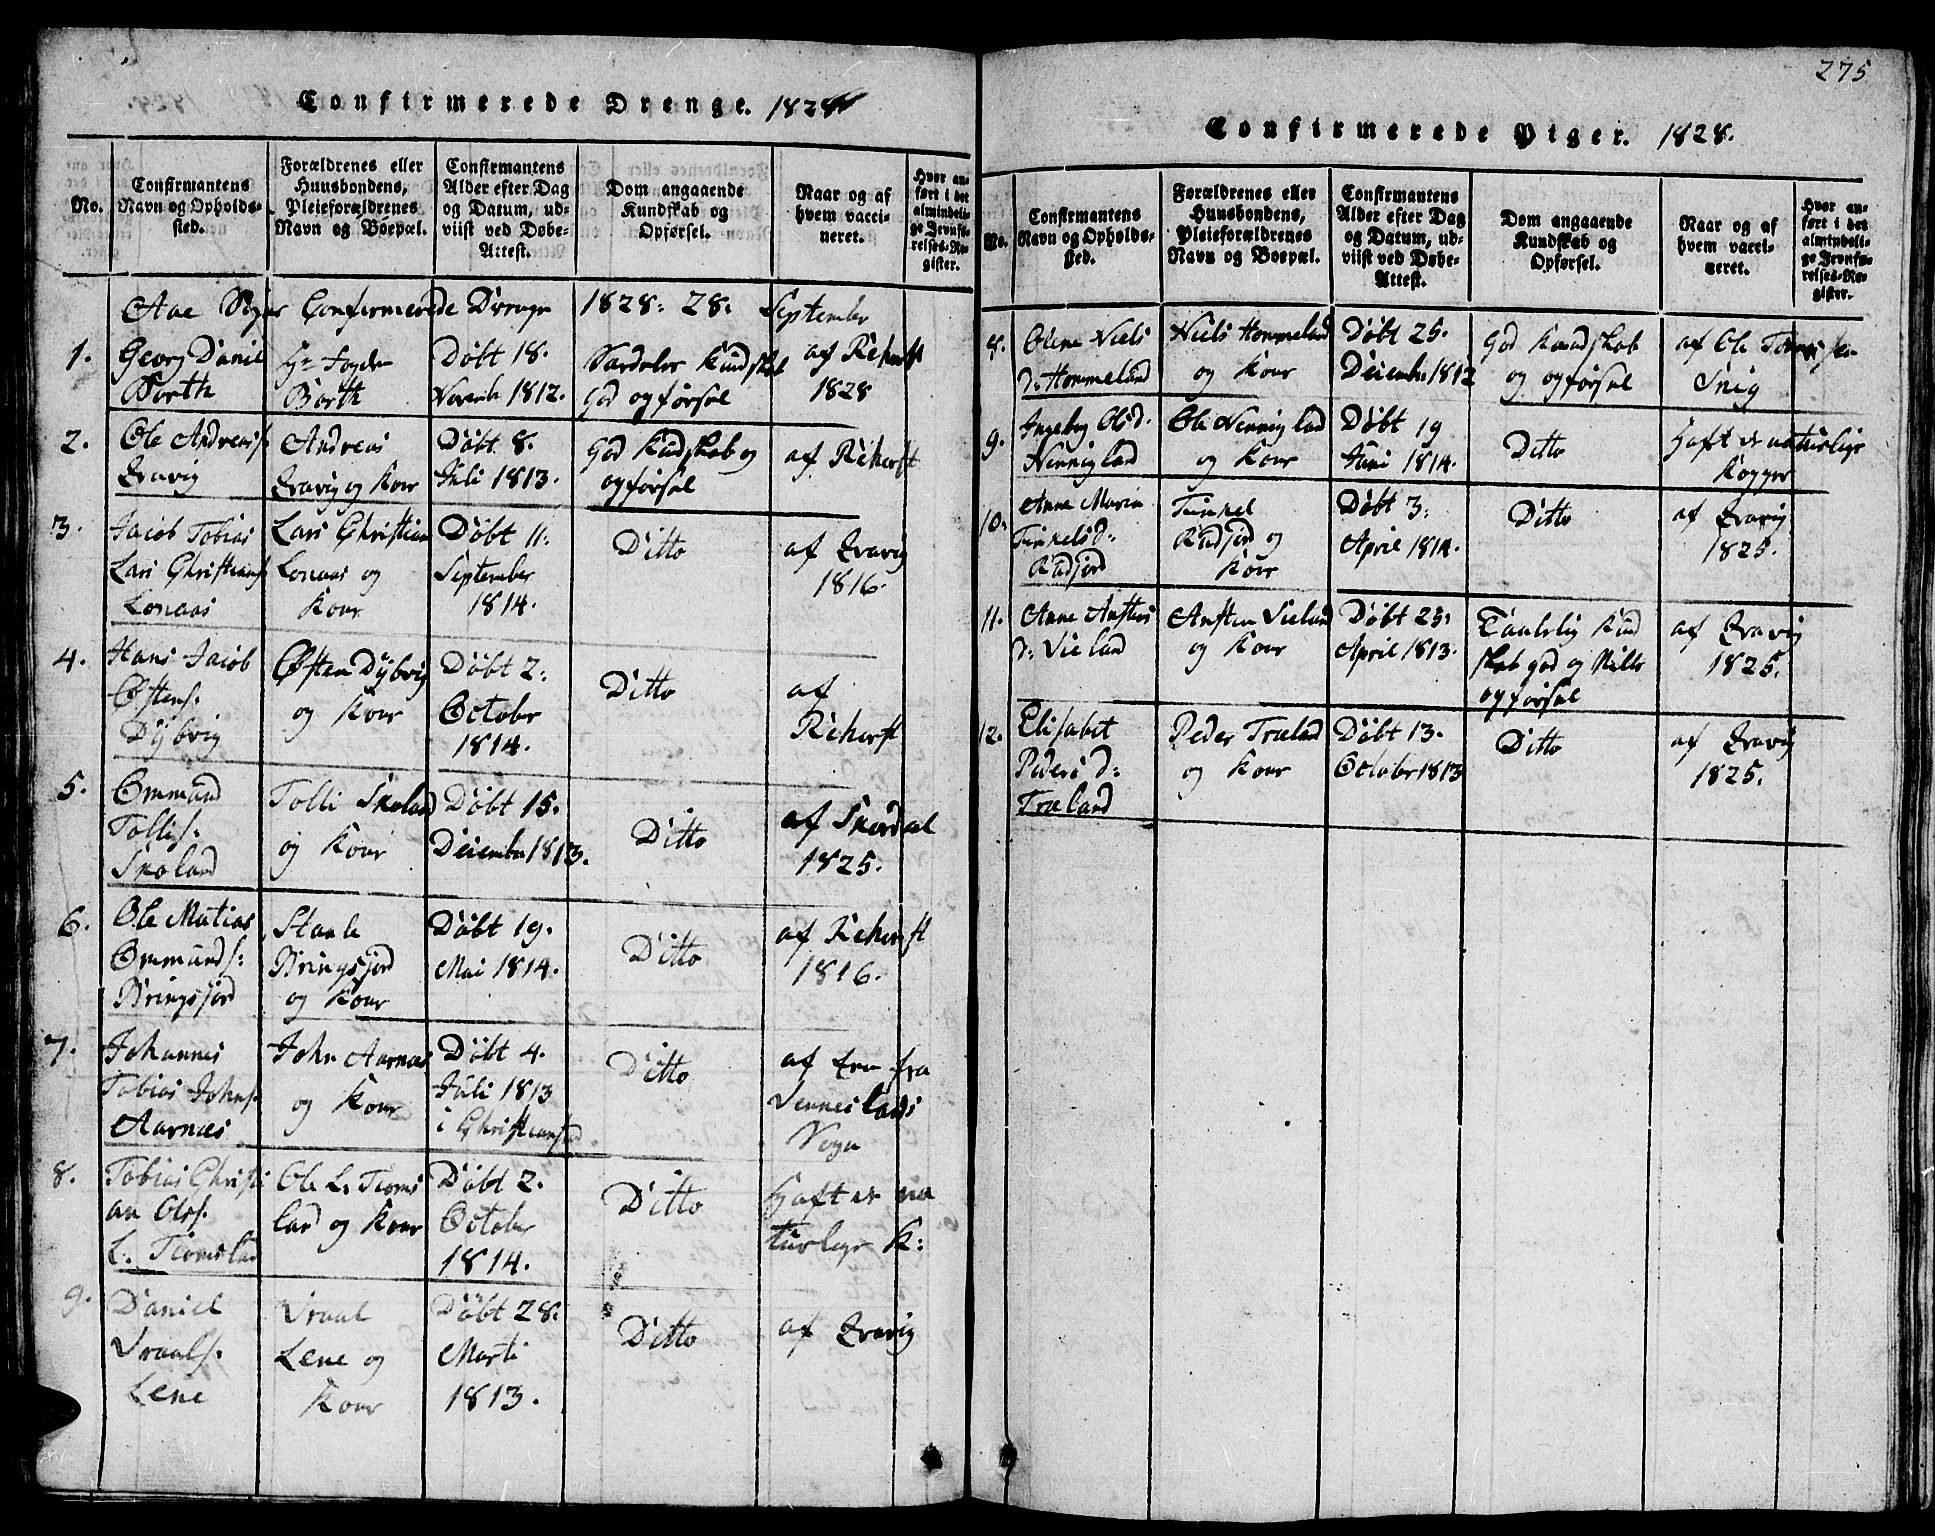 Confirmerede Drenge. 1828
No.
Confirmantens
Navn og Opholds-
sted.
Forældrenes eller
Huusbondens,
Pleieforældrenes
Navn og Boepæl.
Confirmantens
Alder efter Dag
og Datum, ud-
viist ved Døbe-
Attest.
Dom angaaende
Kundskab og
Opførsel.
Naar og af
hvem vacci-
neret.
Hvor an-
ført i det
almindeli-
ge Jevnfø-
relses-Re-
gister.
Aae Sogns Confermerede Drenge 1828: 28. September
1. Georg Daniel
Barth
Hr Fogden
Barth
Døbt 18.
Novemb 1812.
Særdeles Kundskab
God opførsel
af Richerft
1828
2. Ole Andreas
Qvavig
Andreas
Qvavig og Kone
Døbt 8.
Juli 1813.
God Kundskab og
opførsel
af Richerft
3. Jacob Tobias
Lars Christians
Lonaas
Lars Christian
Lonaas og
Kone
Døbt 11.
September
1814.
Ditto
af Qvavig
1816.
4. Hans Jacob
Østens.
Dybvig
Østen Dybvig
og Kone
Døbt 2.
October
1814.
Ditto
af
Richerft
5. Ommund
Tollis.
Skoland
Tolli Skoland
og Kone
Døbt 15.
Decembr 1813.
Ditto
af Skordal
1825.
6. Ole Matias
Ommunds.
Bringsjord
Staale
Bringsjord
og Kone
Døbt 19.
Mai 1814.
Ditto
af Richerft
1816.
7. Johannes
Tobias Johns.
Aarnæs
John Aarnæs
og Kone
Døbt 4.
Juli 1813
i Christiansand
Ditto
af een fra
Venneslads
Sogn
8. Tobias Christi
an Ols.
L. Tiomsland
Ole L. Tioms
land og Kone
Døbt 2.
October
1814.
Ditto
Haft de na
turlige K:
9. Daniel
Vraals.
Lene
Vraal
Lene og
Kone
Døbt 28.
Marti
1813.
Ditto
af Qvavig
275
Confirmerede Piger. 1828.
No.
Confirmantens
Navn og Opholds-
sted.
Forældrenes eller
Huusbondens,
Pleieforældrenes
Navn og Boepæl.
Confirmantens
Alder efter Dag
og Datum, ud-
viist ved Døbe-
Attest.
Dom angaaende
Kundskab og
Opførsel.
Naar og af
hvem vacci-
neret.
Hvor an-
ført i det
almindeli-
ge Jevnfø-
relses-Re-
gister.
8. Olene Niels
d: Hommeland
Niels Hommeland
og Kone
Døbt 25.
Decembr 1812
God Kundskab
og opførsel
af Ole
Snig
9. Ingeborg Olsd.
Nennigland
Ole Nennigland
og Kone
Døbt 19
Juni 1814.
Ditto
Haft de naturlige
Kopper
10. Anne Marie
Tinkelsd:
Rudjord
Tinkel
Rudjord og
Kone
Døbt 3.
April 1814.
Ditto
af Qvavig
1825.
11. Anne Anstens
d: Vieland
Ansten Vieland
og Kone
Døbt 25.
April 1813.
Taalelig Kund
skab god og stille
opførsel
af Qvavig
1825.
12. Elisabet
Pedersd:
Træland
Peder Træland
og Kone
Døbt 13.
October 1813
Ditto
af Qvavig
1825.